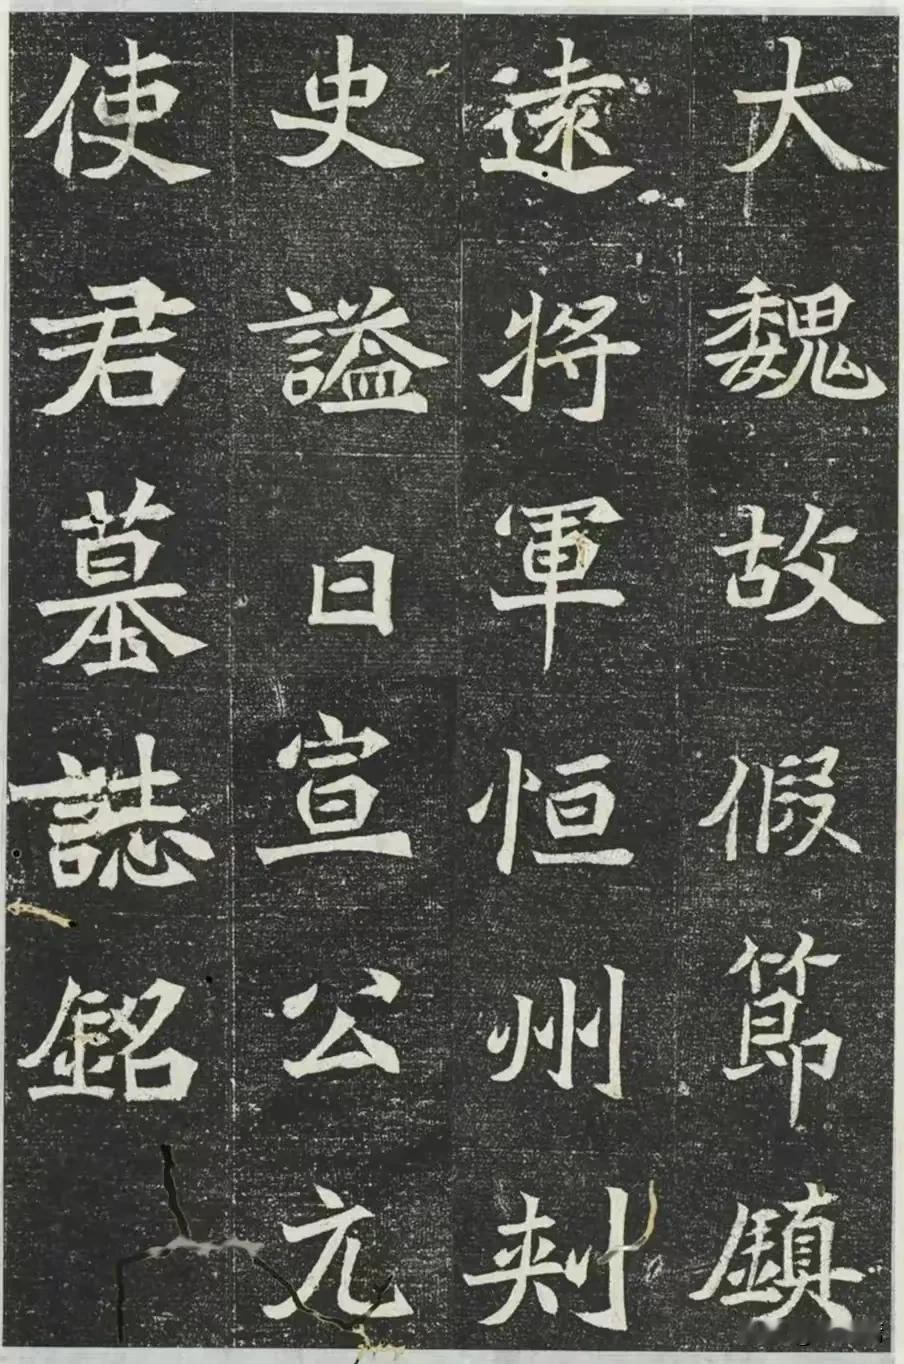 大魏故假節鎮
遠將軍恒州刺
史謚曰宣公元
使君墓誌銘